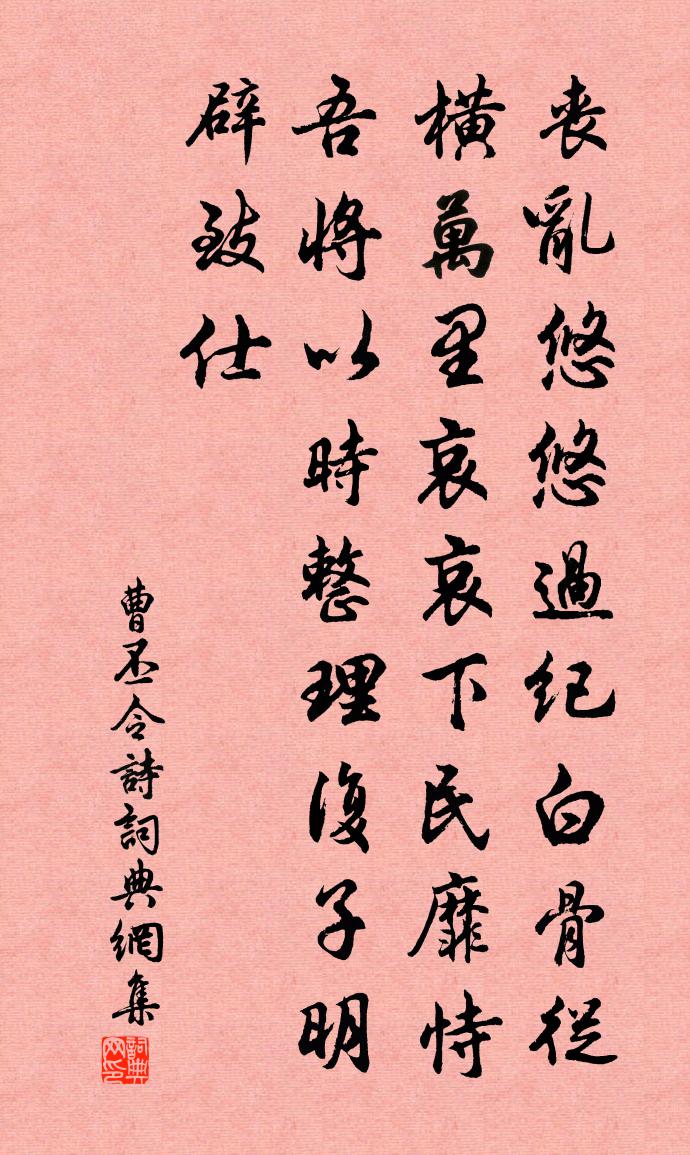 喪亂悠悠過紀白骨從
橫萬里哀哀下民靡恃
吾將以時整理復子明
辟致仕
曹丕令詩詞典網集
詞典网印